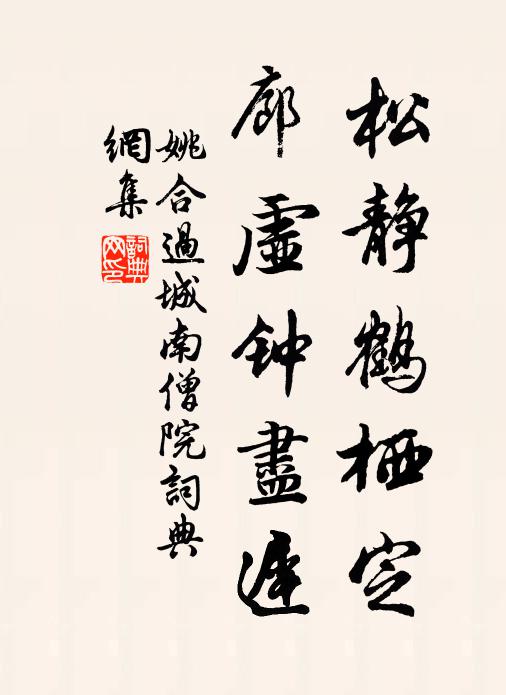 松静鹤栖定
廊虚钟盡遲
姚合過城南僧院詞典
網集
詞典
网印